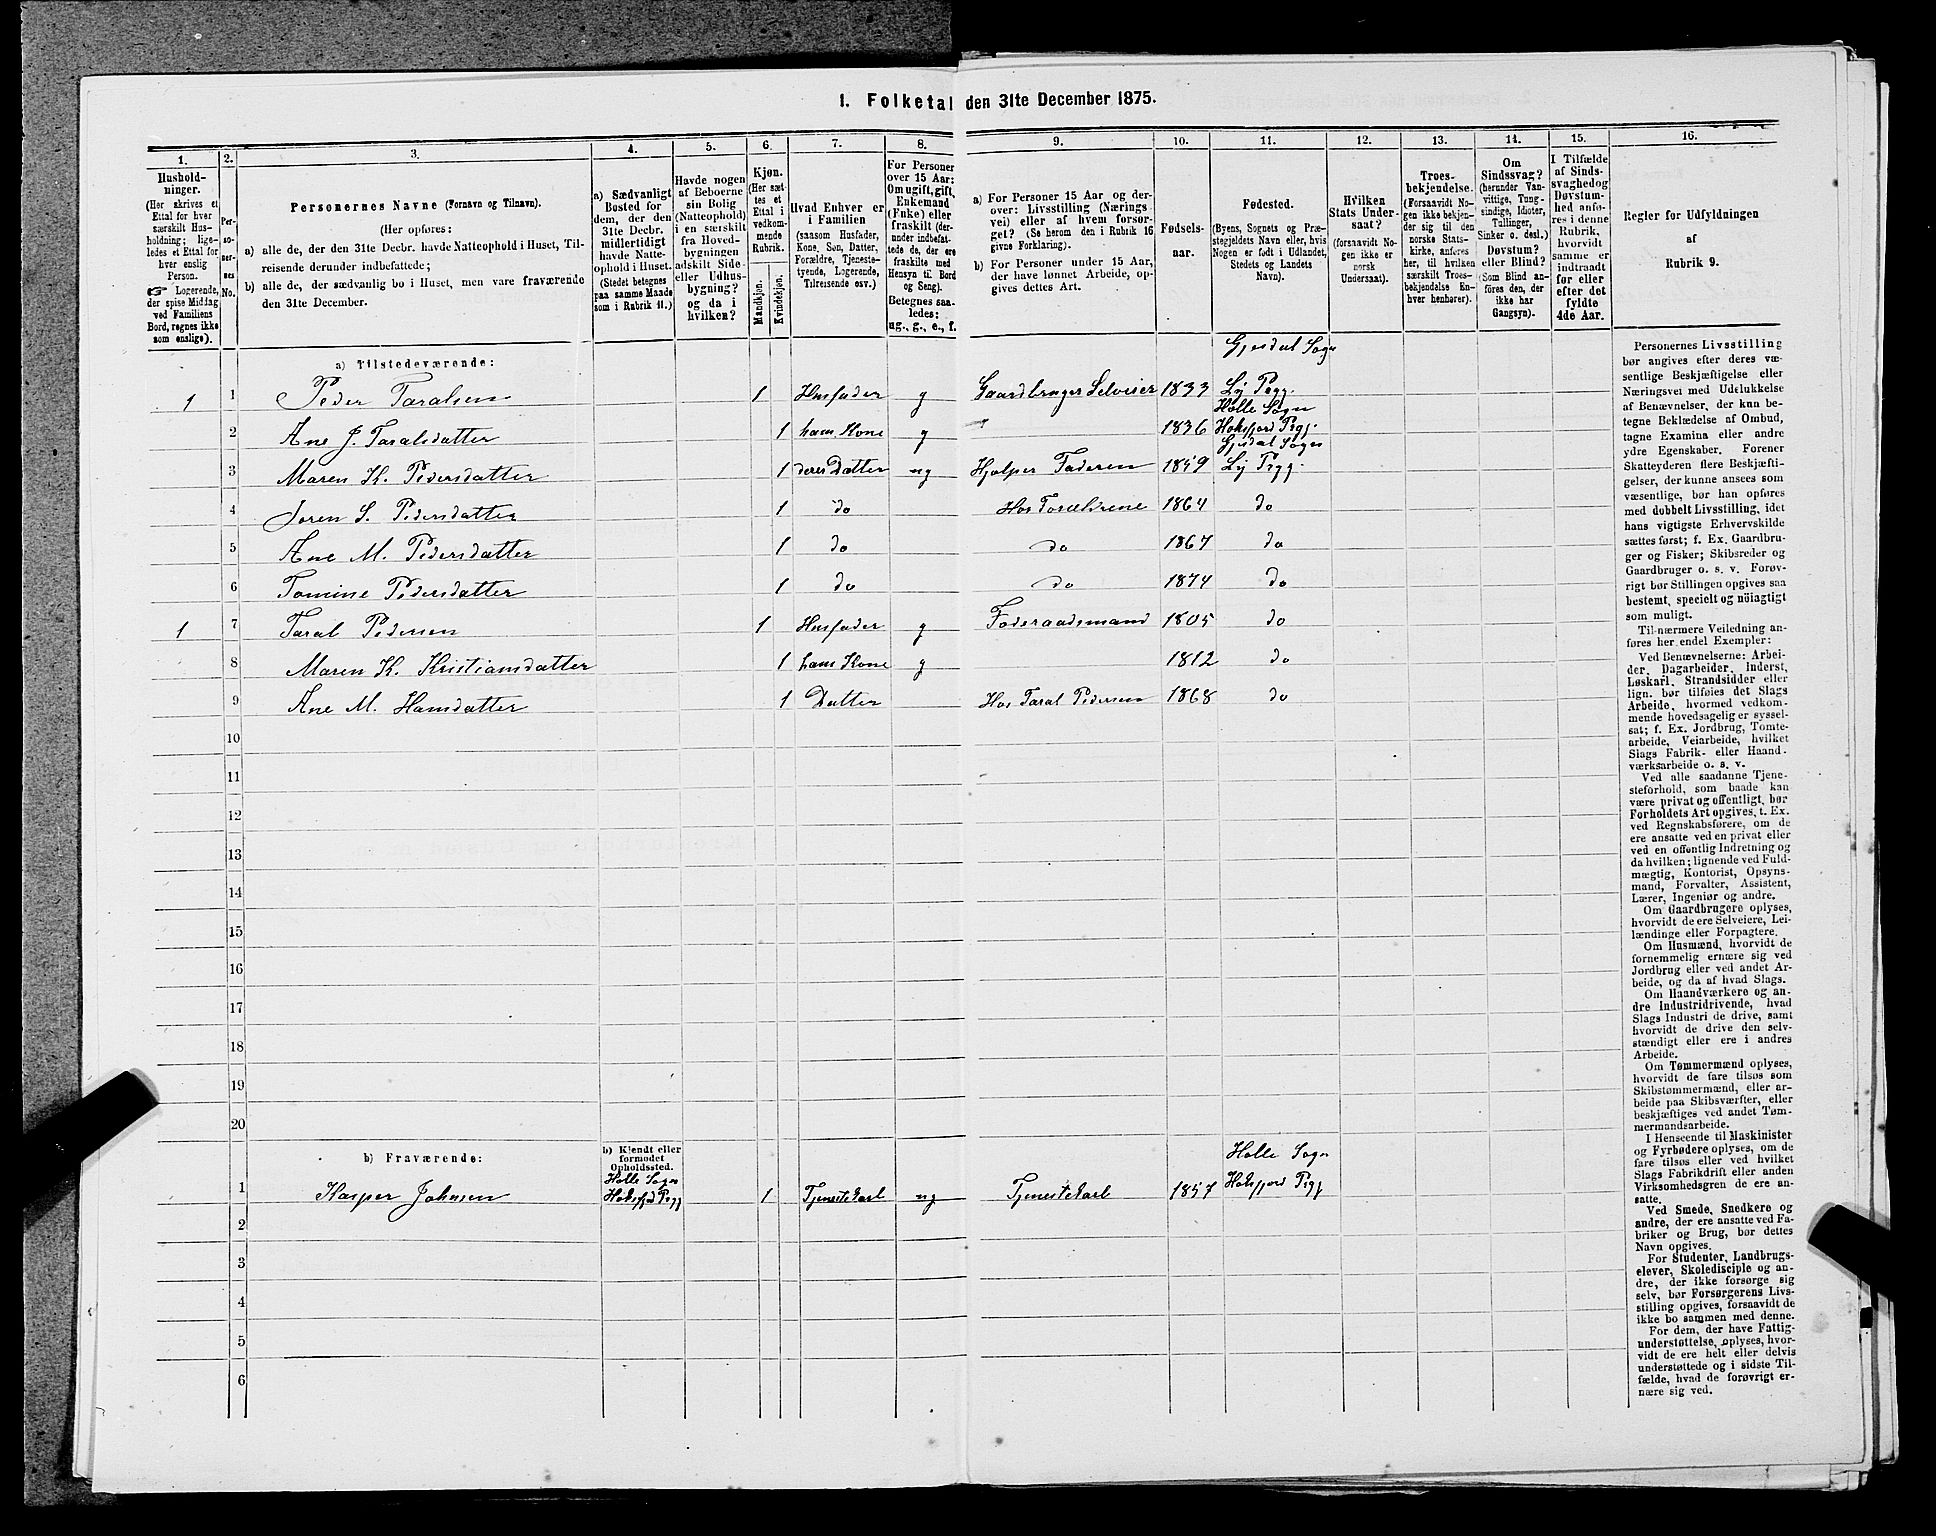 1. Folketal den 31te December 1875.
1.
Hushold-
ninger.
(Her skrives et
Ettal for hver
særskilt Hus-
holdning; lige-
ledes et Ettal for
hver enslig
Person.
☞ Logerende,
der spise Middag
ved Familiens
Bord, regnes ikke
som enslige).
2.
Per-
so-
ner-
nes
No.
3.
Personernes Navne (Fornavn og Tilnavn).
(Her opføres:
a) alle de, der den 31te Decbr. havde Natteophold i Huset, Til-
reisende derunder indbefattede;
b) alle de, der sædvanlig bo i Huset, men vare fraværende
den 31te December.
4.
a) Sædvanligt
Bosted for
dem, der den
31te Decbr.
midlertidigt
havde Natte-
ophold i Huset.
(Stedet betegnes
paa samme Maade
som i Rubrik 11.)
5.
Havde nogen
af Beboerne
sin Bolig
(Natteophold)
i en særskilt
fra Hoved-
bygningen
adskilt Side-
eller Udhus-
bygning?
og da i
hvilken?
6.
Kjøn.
(Her sæt-
tes et
Ettal i
vedkom-
mende
Rubrik.
Mandkjøn.
Kvindekjøn.
7.
Hvad Enhver er
i Familien
(saasom Husfader,
Kone, Søn, Datter,
Forældre, Tjeneste-
tyende, Logerende,
Tilreisende osv.)
8.
For Personer
over 15 Aar:
Om ugift, gift,
Enkemand
(Enke) eller
fraskilt (der-
under indbefat-
tede de, der ere
fraskilte med
Hensyn til Bord
og Seng).
Betegnes saa-
ledes:
ug., g., e., f.
9.
a) For Personer 15 Aar og der-
over: Livsstilling (Nærings-
vei) eller af hvem forsør-
get? (Se herom den i Rubrik 16
givne Forklaring).
b) For Personer under 15 Aar,
der have lønnet Arbeide, op-
gives dettes Art.
10.
Fødsels-
aar.
11.
Fødested.
(Byens, Sognets og Præ-
stegjeldets Navn eller, hvis
Nogen er født i Udlandet,
Stedets og Landets
Navn).
12.
Hvilken
Stats Under-
saat?
(forsaavidt No-
gen ikke er
norsk
Undersaat).
13.
Troes-
bekjendelse.
(Forsaavidt No-
gen ikke bekjen-
der sig til den
norske Stats-
kirke, anføres
her, til hvilken
særskilt Troes-
bekjendelse En-
hver henhører).
14.
Om
Sindssvag?
(herunder Van-
vittige, Tung-
sindige, Idioter,
Tullinger,
Sinker o. desl.)
Døvstum?
eller Blind?
(Som Blind an-
føres den, der
ikke har
Gangsyn).
15.
I Tilfælde
af Sinds-
svaghed og
Døvstum-
hed anfø-
res i denne
Rubrik,
hvorvidt
samme er
indtraadt
før eller
efter det
fyldte
4de Aar.
16.
Regler for Udfyldningen
af
Rubrik 9.
a) Tilstedeværende:
Gjesdal Sogn
1 1 Peder Taralsen 1 Husfader g Gaardbruger Selveier 1833 Ly Pgg.
Holle Sogn
2 Ane J. Taralsdatter 1 hans Kone g " 1836 Høksfjord Pgj.
Gjesdal Sogn
3 Maren K. Pedersdatter 1 deres Datter ug Hjælper Faderen 1859 Ly Pgg.
4 Joren S. Pedersdatter 1 do Hos Forældrene 1864 do
5 Ane M. Pedersdatter 1 do do 1867 do
6 Tomine Pedersdatter 1 do do 1874 do
1 7 Taral Pedersen 1 Husfader g Foderaadsmand 1805 do
8 Maren K. Kristiansdatter 1 hans Kone g 1812 do
9 Ane M. Hansdatter 1 Datter Hos Taral Pedersen 1868 do
10
11
12
13
14
15
16
17
18
19
20
b) Fraværende:
b) Kjendt eller
formodet
Opholdssted.
Holle Sogn Holle Sogn
1 Kasper Johnsen Høksfjd Pgg 1 Tjenestekarl ug Tjenestekarl 1857 Høksfjord Pgg
2
3
4
5
6
Personernes Livsstilling
bør angives efter deres væ-
sentlige Beskjæftigelse eller
Næringsvei med Udelukkelse
af Benævnelser, der kun be-
tegne Beklædelse af Ombud,
tagne Examina eller andre
ydre Egenskaber. Forener
Skatteyderen flere Beskjæfti-
gelser, der kunne ansees som
væsentlige, bør han opføres
med dobbelt Livsstilling, idet
hans vigtigste Erhvervskilde
sættes først; f. Ex. Gaardbru-
ger og Fisker; Skibsreder og
Gaardbruger o. s. v. Forøv-
rigt bør Stillingen opgives saa
bestemt, specielt og nöiagtigt
som muligt.
Til nærmere Veiledning an-
føres her endel Exempler:
Ved Benævnelserne: Arbei-
der, Dagarbeider, Inderst,
Løskarl, Strandsidder eller
lign. bør tilføies det Slags
Arbeide, hvormed vedkom-
mende hovedsagelig er syssel-
sat; f. Ex. Jordbrug, Tomte-
arbeide, Veiarbeide, hvilket
Slags Fabrik- eller Haand-
værksarbeide o. s. v.
Ved alle saadanne Tjene-
steforhold, som baade kan
være privat og offentligt, bør
Forholdets Art opgives, t. Ex.
ved Regnskabsførere, om de
ere ansatte ved en privat eller
ved en offentlig Indretning og
da hvilken; lignende ved Fuld-
mægtig, Kontorist, Opsyns-
mand, Forvalter, Assistent,
Lærer, Ingeniør og andre.
Om Gaardbrugere oplyses,
hvorvidt de ere Selveiere, Lei-
lændinge eller Forpagtere.
Om Husmænd, hvorvidt de
fornemmelig ernære sig ved
Jordbrug eller ved andet Ar-
beide, og da af hvad Slags.
Om Haandværkere og an-
dre Industridrivende, hvad
Slags Industri de drive, samt
hvorvidt de drive den selv-
stændigt eller ere i andres
Arbeide.
Om Tømmermænd oplyses,
hvorvidt de fare tilsøs som
Skibstømmermænd, eller ar-
beide paa Skibsværfter, eller
beskjæftiges ved andet Tøm-
mermandsarbeide.
I Henseende til Maskinister
og Fyrbødere oplyses, om de
fare tilsøs eller ved hvilket
Slags Fabrikdrift eller anden
Virksomhedsgren de ere an-
satte.
Ved Smede, Snedkere og
andre, der ere ansatte ved Fa-
briker og Brug, bør dettes
Navn opgives.
For Studenter, Landbrugs-
elever, Skoledisciple og an-
dre, der ikke forsørge sig
selv, bør Forsørgerens Livs-
stilling opgives, forsaavidt de
ikke bo sammen med denne.
For dem, der have Fattig-
understøttelse, oplyses, hvor-
vidt de ere helt eller delvis
understøttede og i sidste Til-
fælde, hvad de forøvrigt er-
nære sig ved.